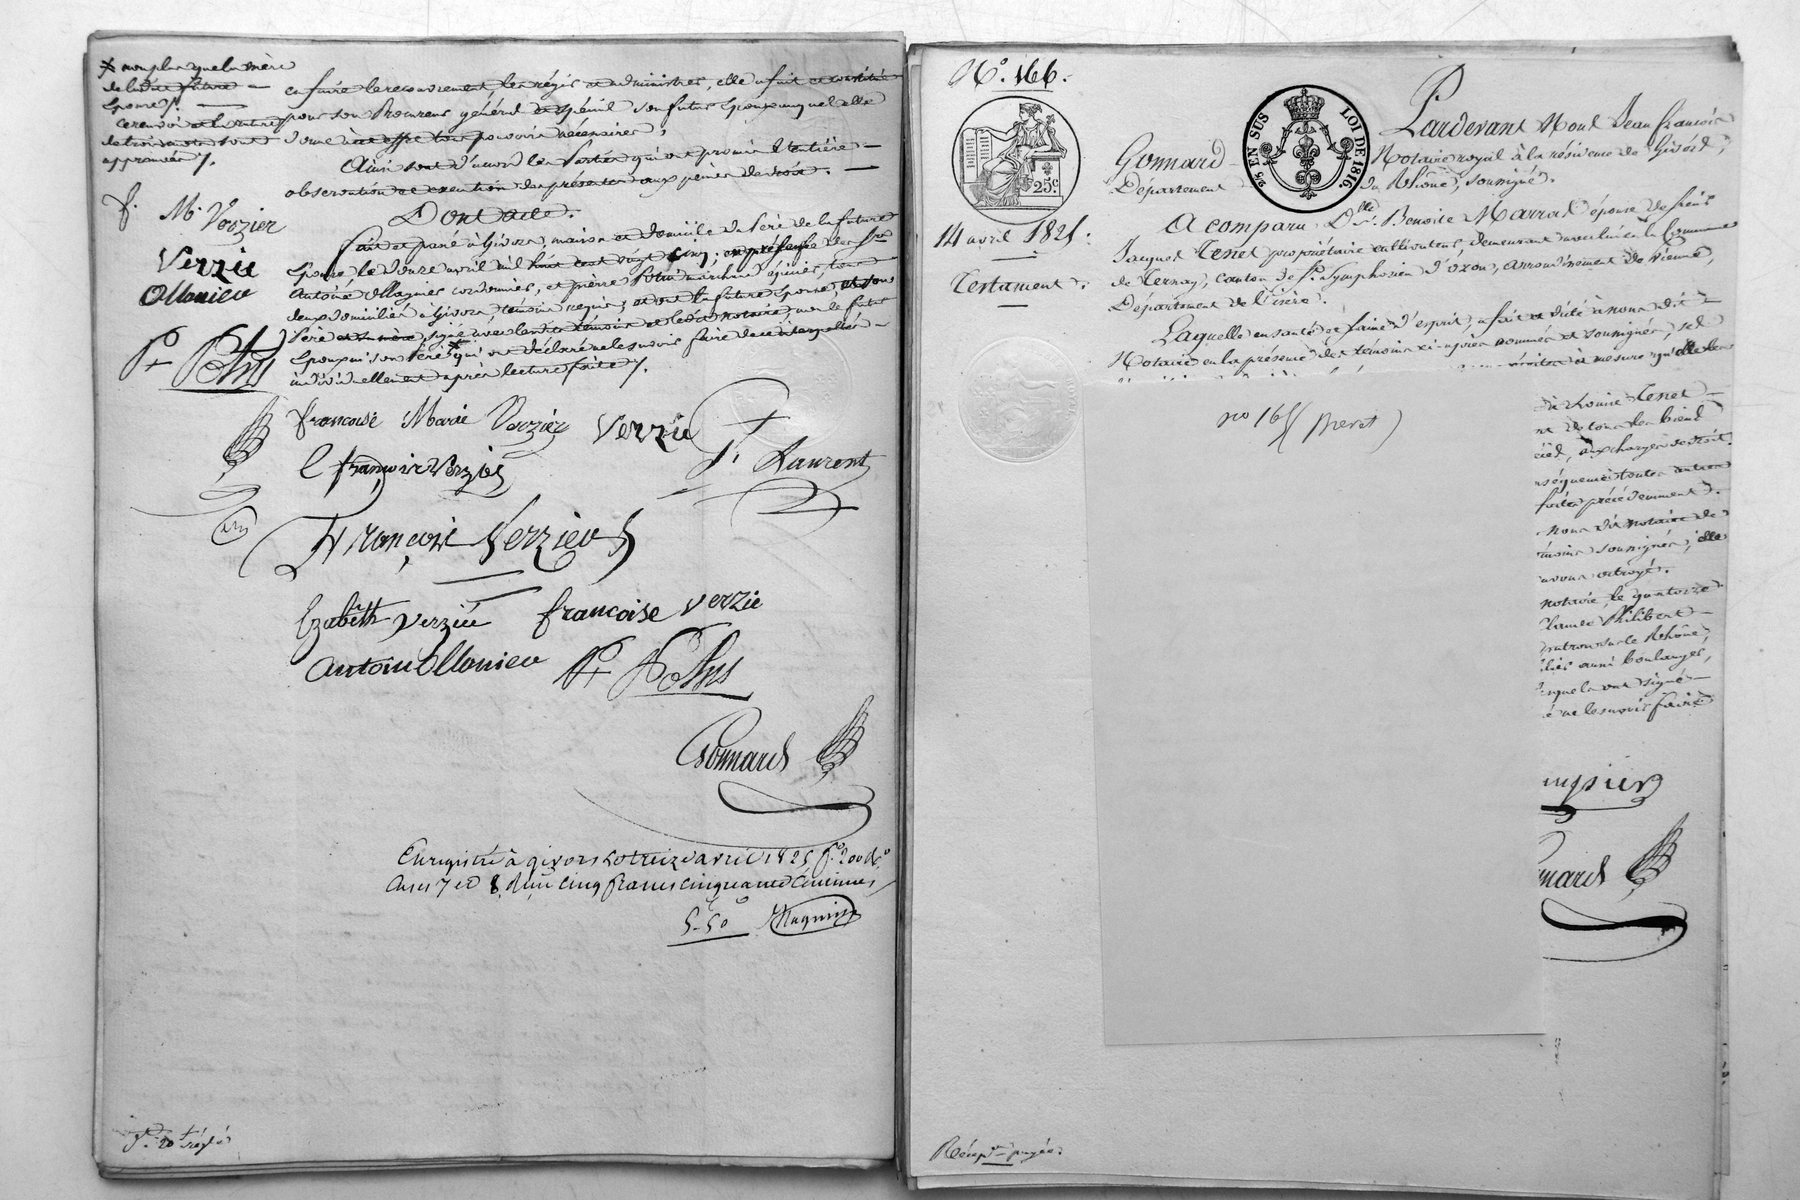 non plus que la mère
de la d.te future
épouse /.
ce renvoi et la rature
de trois mots sont
approuvés /.
f. M. Verzier
Verzie
Ollanier
P.re Pothus
en faire le recouvrement, les régir et administrer, elle a fait et constitué
pour son Procureur général et spécial son futur époux auquel elle
donne à cet effet tous pouvoirs nécessaires,
Ainsi sont d'accord les Parties qui ont promis l'entière
observation et exécution des présentes aux peines de droit.
Dont acte.
Fait et passé à Givors, maison et domicile du Père de la future
épouse, le douze avril mil huit cent vingt cinq; en présence des Srs
Antoine Ollagnier cordonnier, et pierre Pothus marchand épicier, tous
deux domiciliés à Givors témoins requis; et ont la future épouse, et son
Père et sa mère, signé avec lesdits témoins et ledit notaire, non le futur
époux ni son Père qui ont déclaré ne le savoir faire de ce interpellés
individuellement après lecture faite /.
françoise Marie Verzier Verzie
f. Laurent
françois Verzier
François Verzieu
Elzabeth Verziée françoise Verzie
Antoine Ollanier P.re Pothus
Gonnard
Enregistré à givors le treize avril 1825 f.o 200 R.o
Cases 7 et 8, Reçu cinq francs cinquante centimes
5-50 Magnin
N.o 166.
25 c.
14 avril 1825.
Testament.
25 EN SUS
LOI DE 1816.
Pardevant Nous Jean François
Gonnard Notaire royal à la résidence de Givors,
Département du Rhône, soussigné.
A comparu D.lle Benoite Marral épouse de sieur
Jacques Tenet propriétaire cultivateur, demeurant avec lui en la Commune
de Ternay, canton de St. Symphorien d'ozon, arrondissement de Vienne,
Département de l'Isère.
Laquelle en santé et saine d'esprit, a fait et dicté à nous dit
Notaire en la présence des témoins ci-après nommés et soussignés, sel
à mesure qu'elle les
n.o 165 (Brevet)
Louise Tenet
de tous les biens
aux charges de droit.
toutes autres
faites précédemment.
nous dit notaire de
soussignés; elle
avons octroyé.
notaire, le quatorze
Philibert
sur le Rhône,
aussi boulanger,
lesquels ont signé
ne le savoir faire
Récep.on payée.